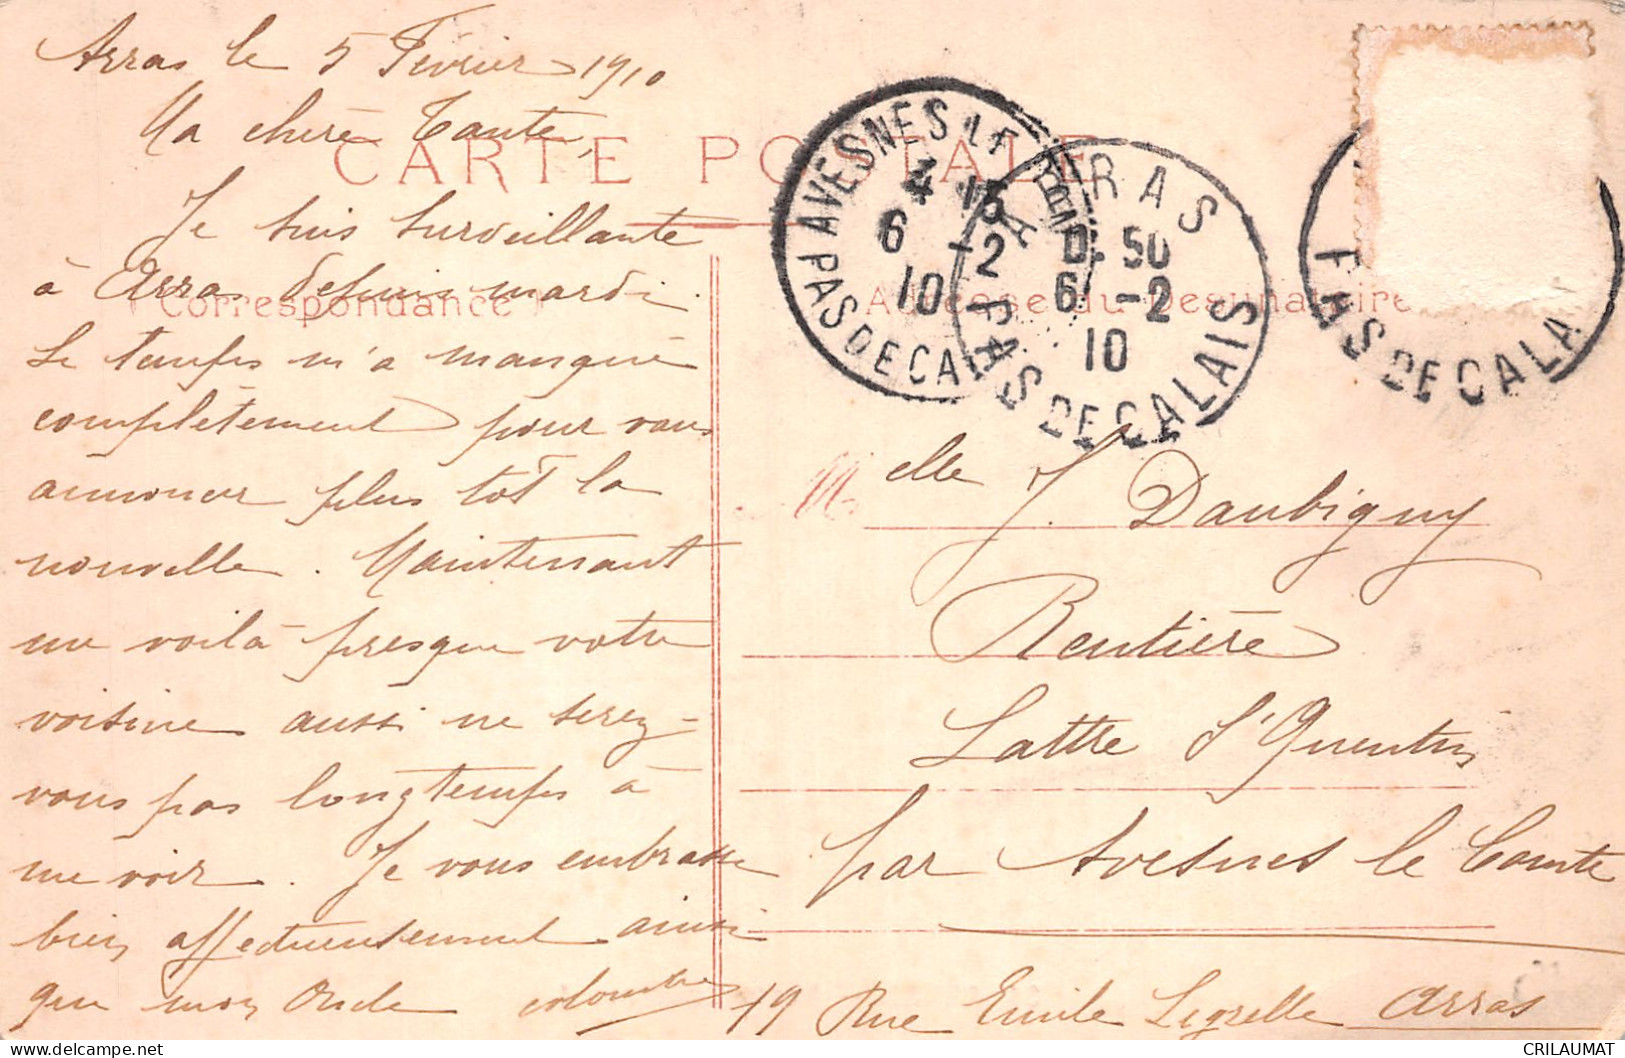 Arras le 5 Février 1910
Ma chère Tante,
CARTE POSTALE
Je suis surveillante
à Arras depuis mardi.
Correspondance
Le temps m'a manqué
complètement pour vous
annoncer plus tôt la
nouvelle. Maintenant
me voilà presque votre
voisine aussi ne serez-
vous pas longtemps à
me voir. Je vous embrasse
bien affectueusement ainsi
que mon Oncle
19 Rue Emile Legrelle Arras
AVESNES LE COMTE
4 15
6 -2
10
PAS DE CALAIS
ARRAS
0.50
6 -2
10
PAS DE CALAIS
PAS DE CALA
Adresse du Destinataire
Melle J. Daubigny
Rentière
Lattre St Quentin
par Avesnes le Comte
CRILAUMAT